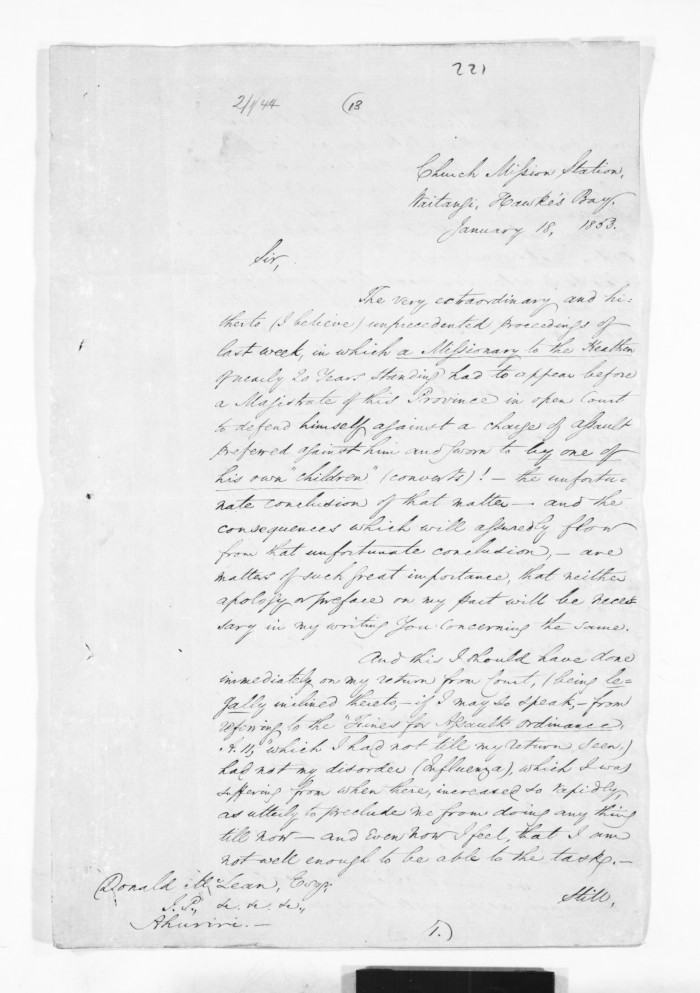 221
2/144 (13
Church Mission Station,
Waitangi, Hawke's Bay,
January 18, 1853.
Sir,
The very extraordinary and hi-
therto (I believe) unprecedented proceedings of
last week, in which a Missionary to the Heathen
of nearly 20 Years standing had to appear before
a Magistrate of this Province in open Court
to defend himself against a charge of assault
preferred against him and sworn to by one of
his own "children" (converts)! – the unfortu-
nate conclusion of that matter – and the
consequences which will assuredly flow
from that unfortunate conclusion, – are
matters of such great importance, that neither
apology or preface on my part will be neces-
sary in my writing You concerning the same.
And this I should have done
immediately on my return from Court, (being le-
gally inclined thereto, – if I may so speak, – from
referring to the "Fines for Assaults Ordinance,
which I had not till my return seen,)
had not my disorder (Influenza), which I was
suffering from when there, increased so rapidly,
as utterly to preclude me from doing any thing
till now – and even now I feel, that I am
not well enough to be able to the task. –
Still,
Donald McLean, Esqr.
J.P., &c. &c. &c.,
Ahuriri. –
(1.)